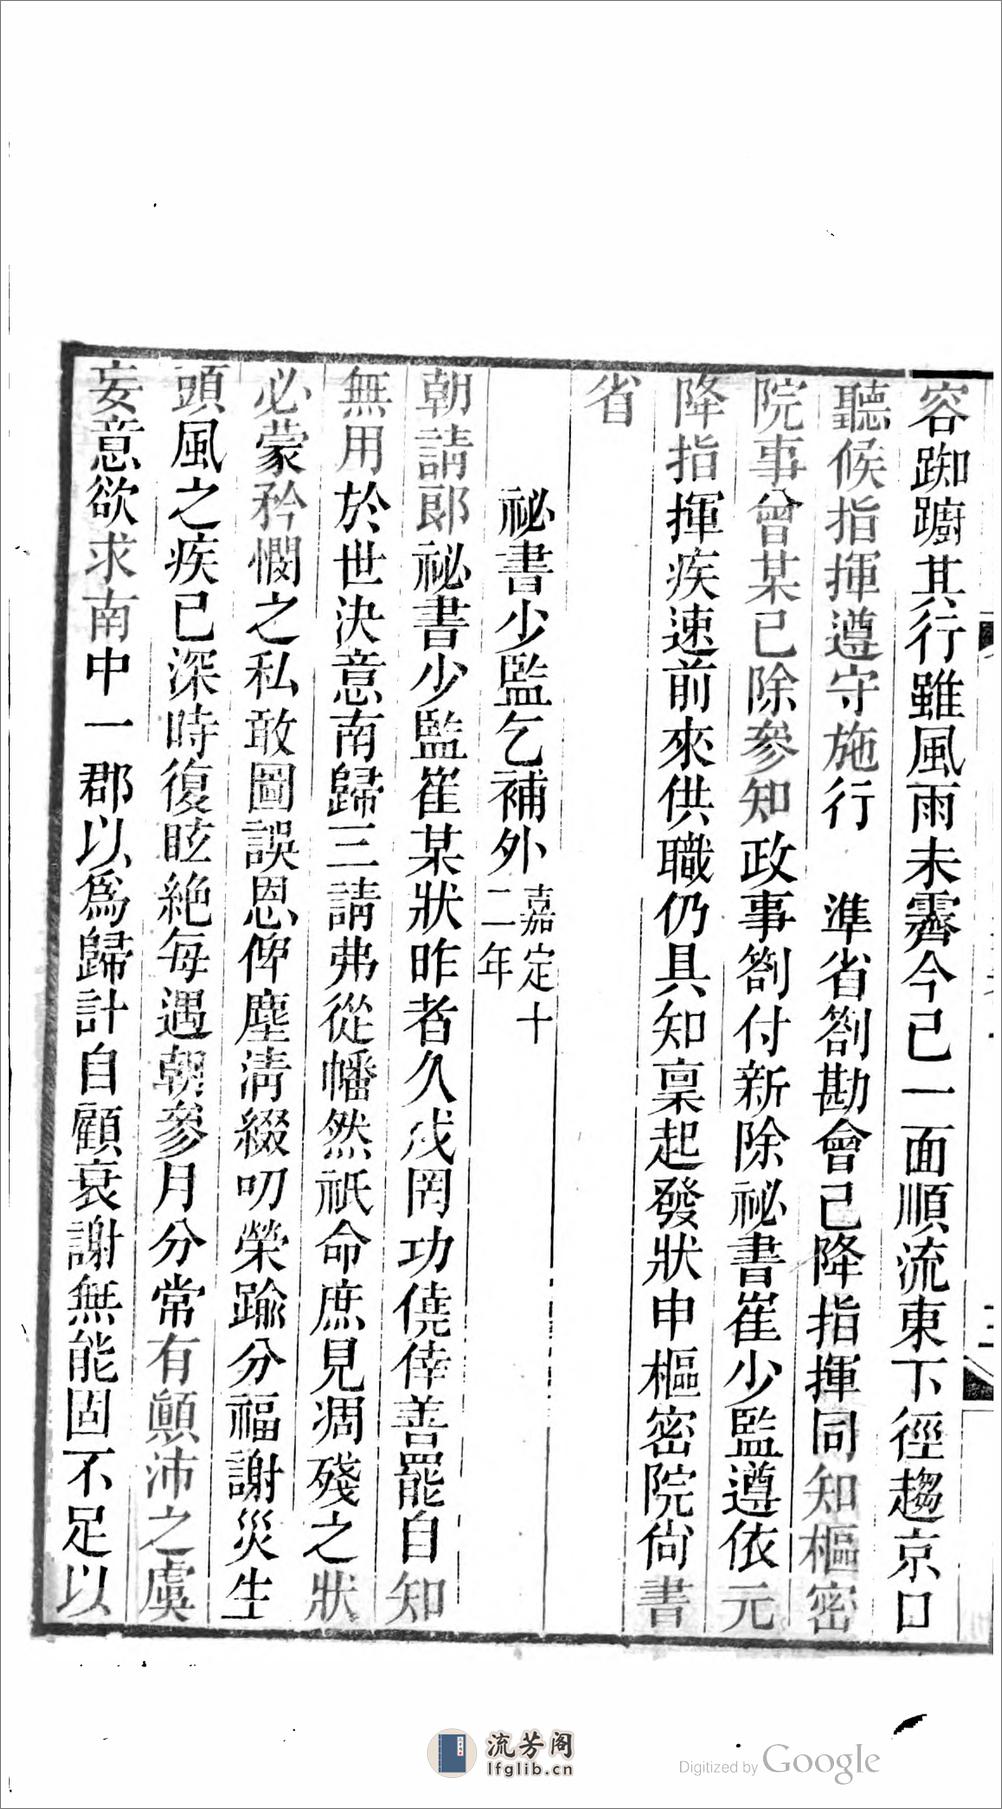 容踟躕其行雖風雨未霽今已一面順流東下徑趨京口
聽候指揮遵守施行　準省劄勘會已降指揮同知樞密
院事曾某已除參知政事劄付新除祕書崔少監遵依元
降指揮疾速前來供職仍具知稟起發狀申樞密院尙書
省
祕書少監乞補外嘉定十二年
朝請郎祕書少監崔某狀昨者久戍罔功僥倖善罷自知
無用於世決意南歸三請弗從幡然祇命庶見凋殘之狀
必蒙矜憫之私敢圖誤恩俾塵淸綴叨榮踰分福謝災生
頭風之疾已深時復眩絶每遇朝參月分常有顚沛之虞
妄意欲求南中一郡以爲歸計自顧衰謝無能固不足以
流芳阁
lfglib.cn
Digitized by Google